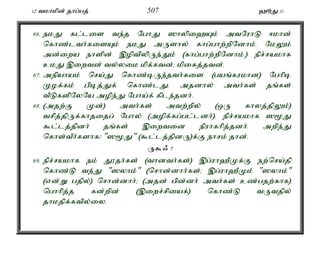 12 வமாமின் தாப்பத் 507 ஹூது 11
66. நமது கட்டளை வந்த போது ஸாலிஹையும் அவரோடு ஈமான்
கொண்டவர்களையும் நமது அருளால் காப்பாற்றினோம். மேலும்
அன்றைய நாளின் இழிவிலிருந்தும் (காப்பாற்றினோம்.) நிச்சயமாக
உமது இறைவன் வல்லமை மிக்கவன்; மிகைத்தவன்.
67. அநியாயம் செய்து கொண்டிருந்தவர்களை (பயங்கரமான) பேரிடி
முழக்கம் பிடித்துக் கொண்டது. அதனால் அவர்கள் தங்கள்
வீடுகளிலேயே அழிந்து போய்க் கிடந்தனர்.
68. (அதற்கு முன்) அவர்கள் அவற்றில் (ஒரு காலத்திலும்)
வசித்திருக்காததைப் போல் (அழிக்கப்பட்டனர்). நிச்சயமாக ஸமூது
கூட்டத்தினர் தங்கள் இறைவனை நிராகரித்தனர். அறிந்து
கொள்வீர்களாக: "ஸமூது" (கூட்டத்தினரு)க்கு நாசம் தான்.
ருகூஃ 7
69. நிச்சயமாக நம் தூதர்கள் (வானவர்கள்) இப்ராஹீமுக்கு நற்செய்தி
கொண்டு வந்து "ஸலாம்" (சொன்னார்கள்; இப்ராஹீமும் "ஸலாம்"
(என்று பதில்) சொன்னார்; (அதன் பின்னர் அவர்கள் உண்பதற்காக)
பொரித்த கன்றின் (இறைச்சியைக்) கொண்டு வருவதில்
தாமதிக்கவில்லை.